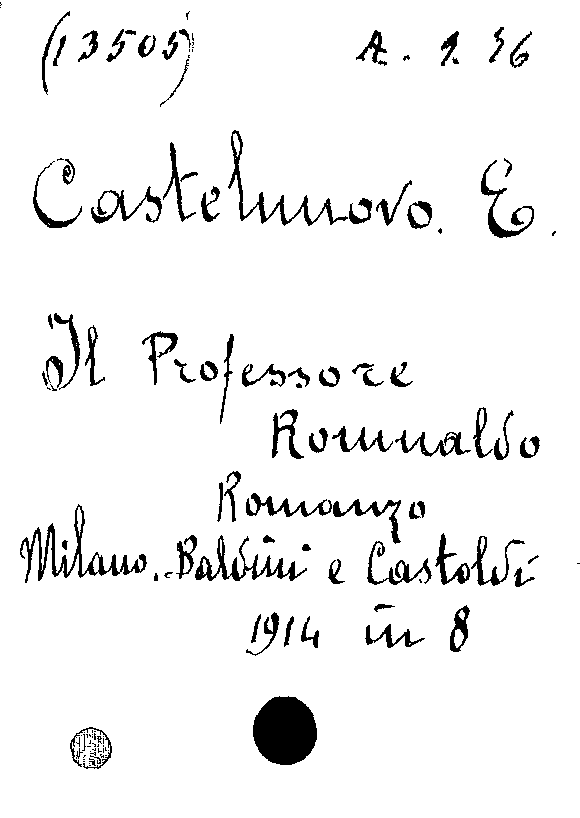 (13505) A. 9. 36
Castelnuovo. E.
Il Professore
Romualdo
Romanzo
Milano. Baldini e Castoldi
1914 in 8